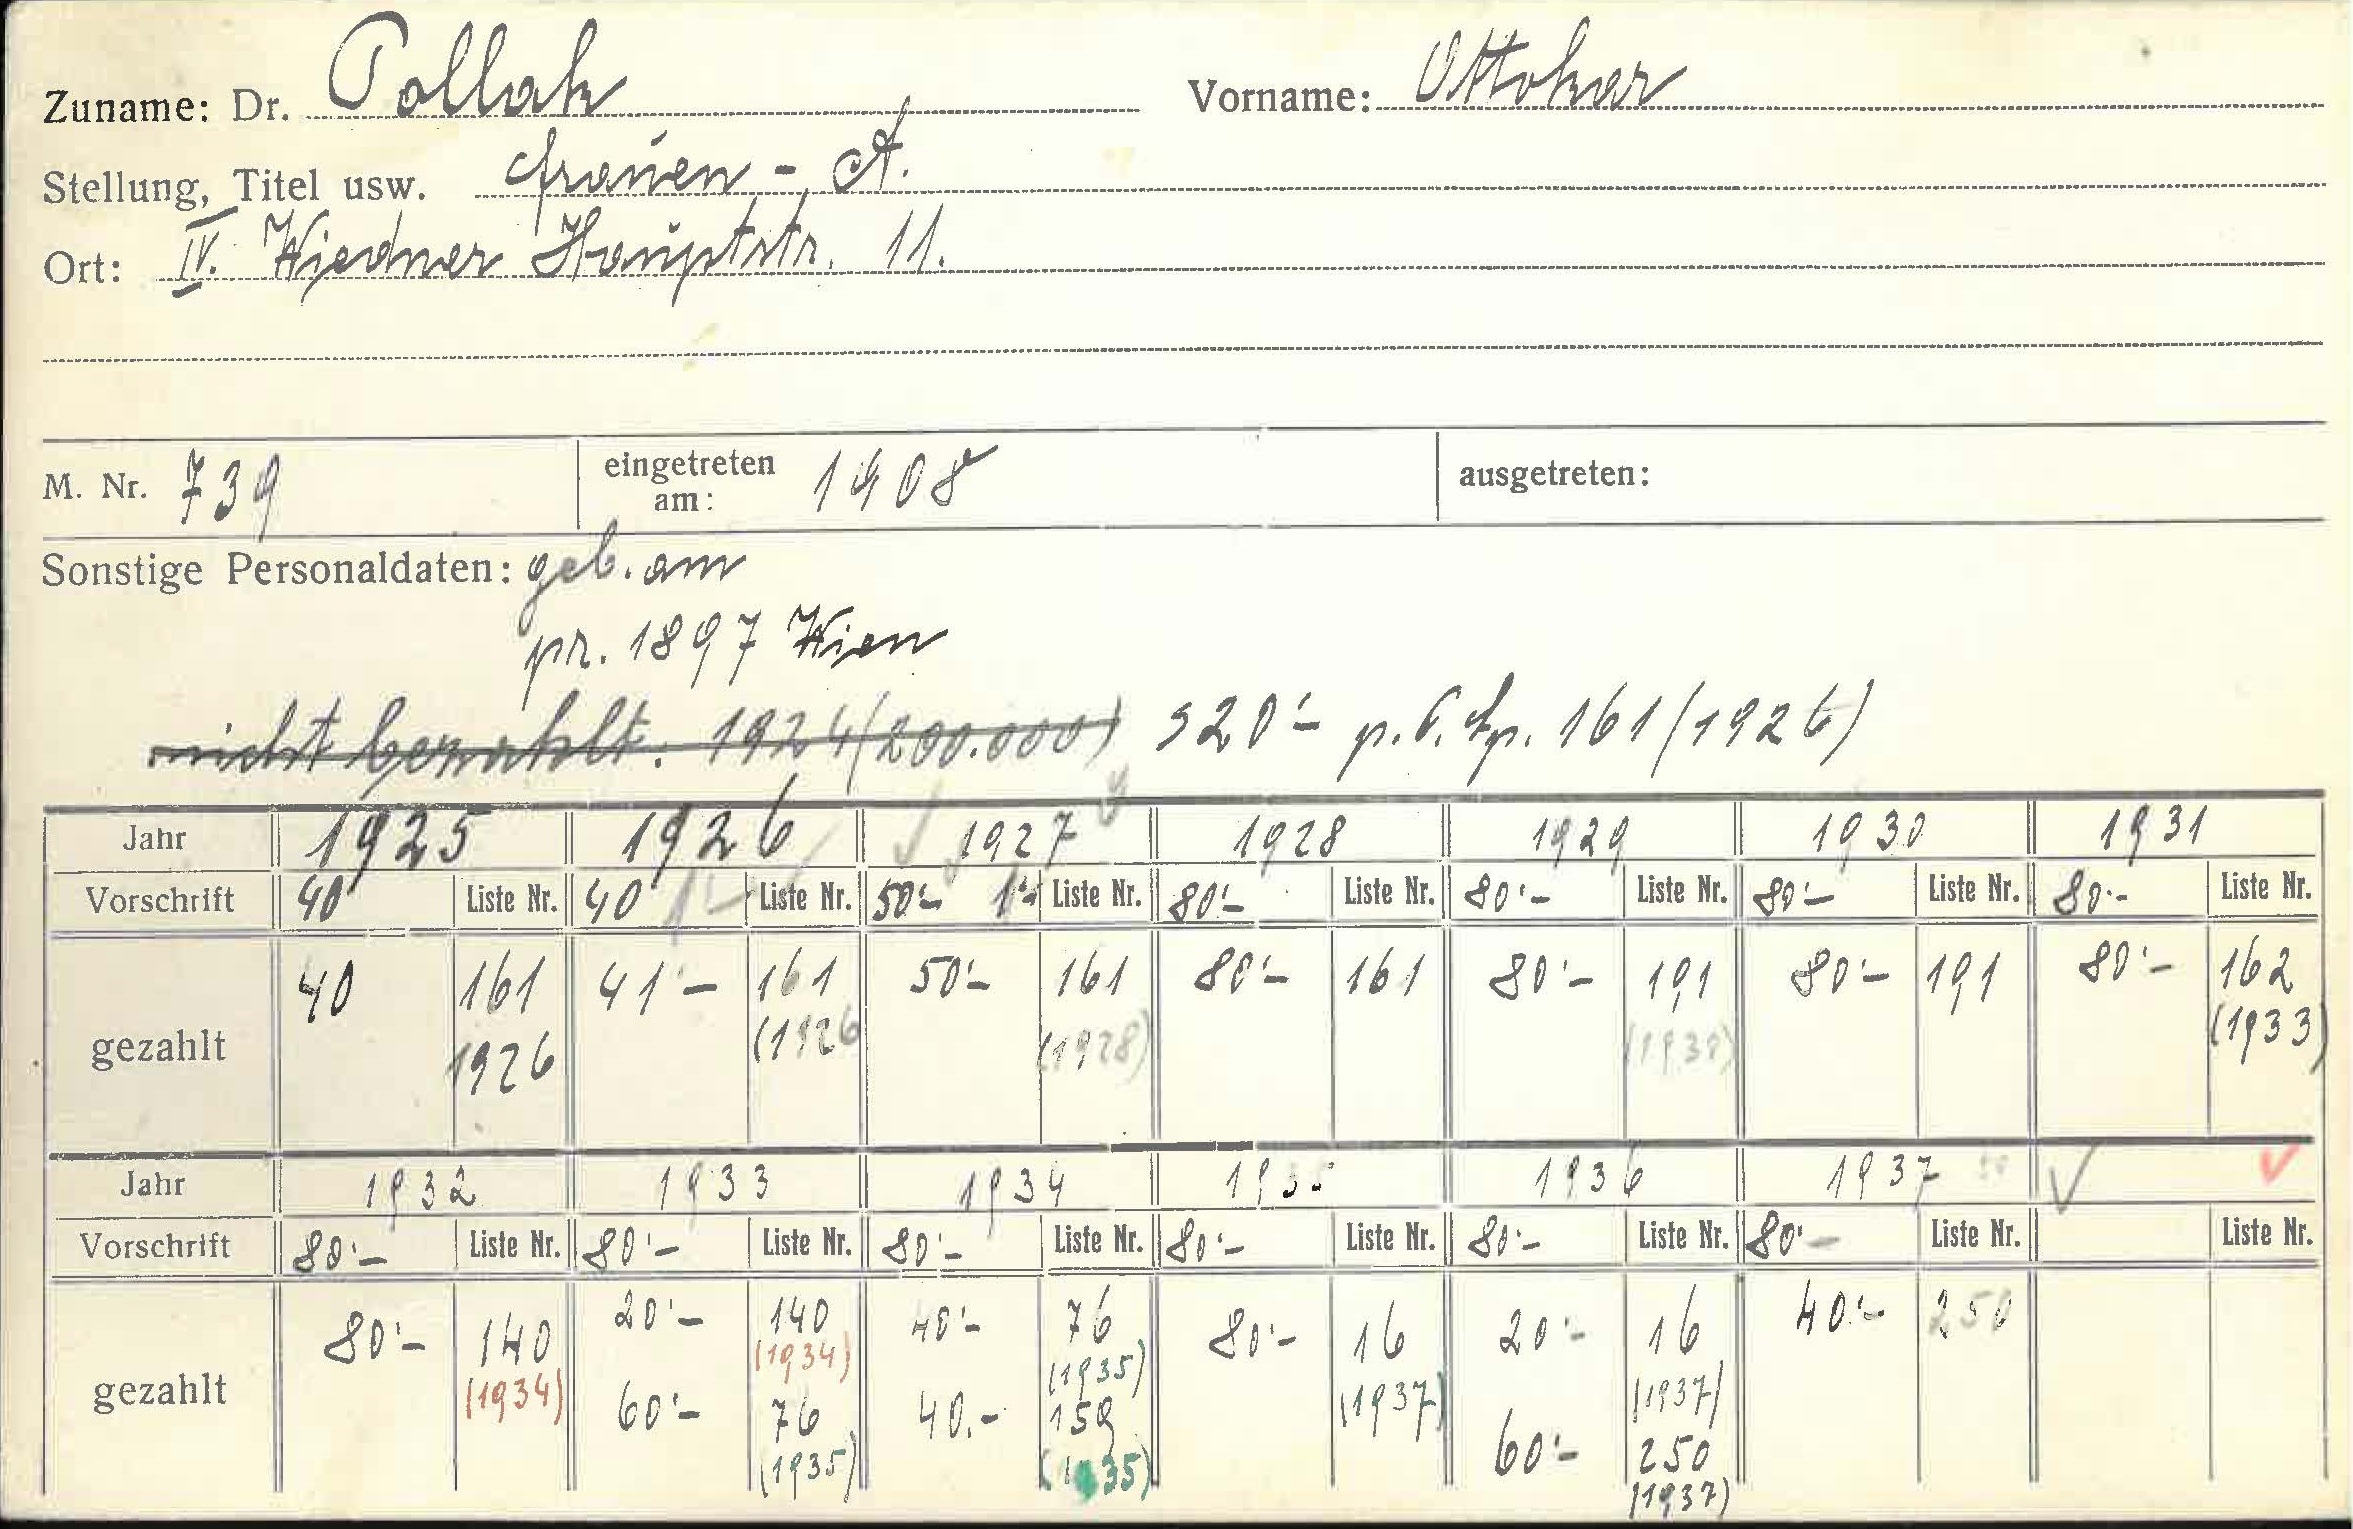 Zuname: Dr. Pollak Vorname: Ottokar
Stellung, Titel usw. Frauen - A.
Ort: IV. Wiedner Hauptstr. 11.
M. Nr. 739 eingetreten am: 1908 ausgetreten:
Sonstige Personaldaten: geb. am
pr. 1897 Wien
nicht bezahlt: 1924 (200.000) S 20·- 161 (1926)
Jahr 1925 1926 1927 1928 1929 1930 1931
Vorschrift 40 Liste Nr. 40 1·- Liste Nr. 50·- 1·- Liste Nr. 80·- Liste Nr. 80·- Liste Nr. 80·- Liste Nr. 80·- Liste Nr.
gezahlt 40 161 41·- 161 50·- 161 80·- 161 80·- 191 80·- 191 80·- 162
1926 (1926 (1928) (1930) (1933)
Jahr 1932 1933 1934 1935 1936 1937
Vorschrift 80·- Liste Nr. 80·- Liste Nr. 80·- Liste Nr. 80·- Liste Nr. 80·- Liste Nr. 80·- Liste Nr. Liste Nr.
gezahlt 80·- 140 20·- 140 40·- 76 80·- 16 20·- 16 40·- 250
(1934) (1934) (1935) (1937) (1937)
60·- 76 40.- 159 60·- 250
(1935) (1935) (1937)